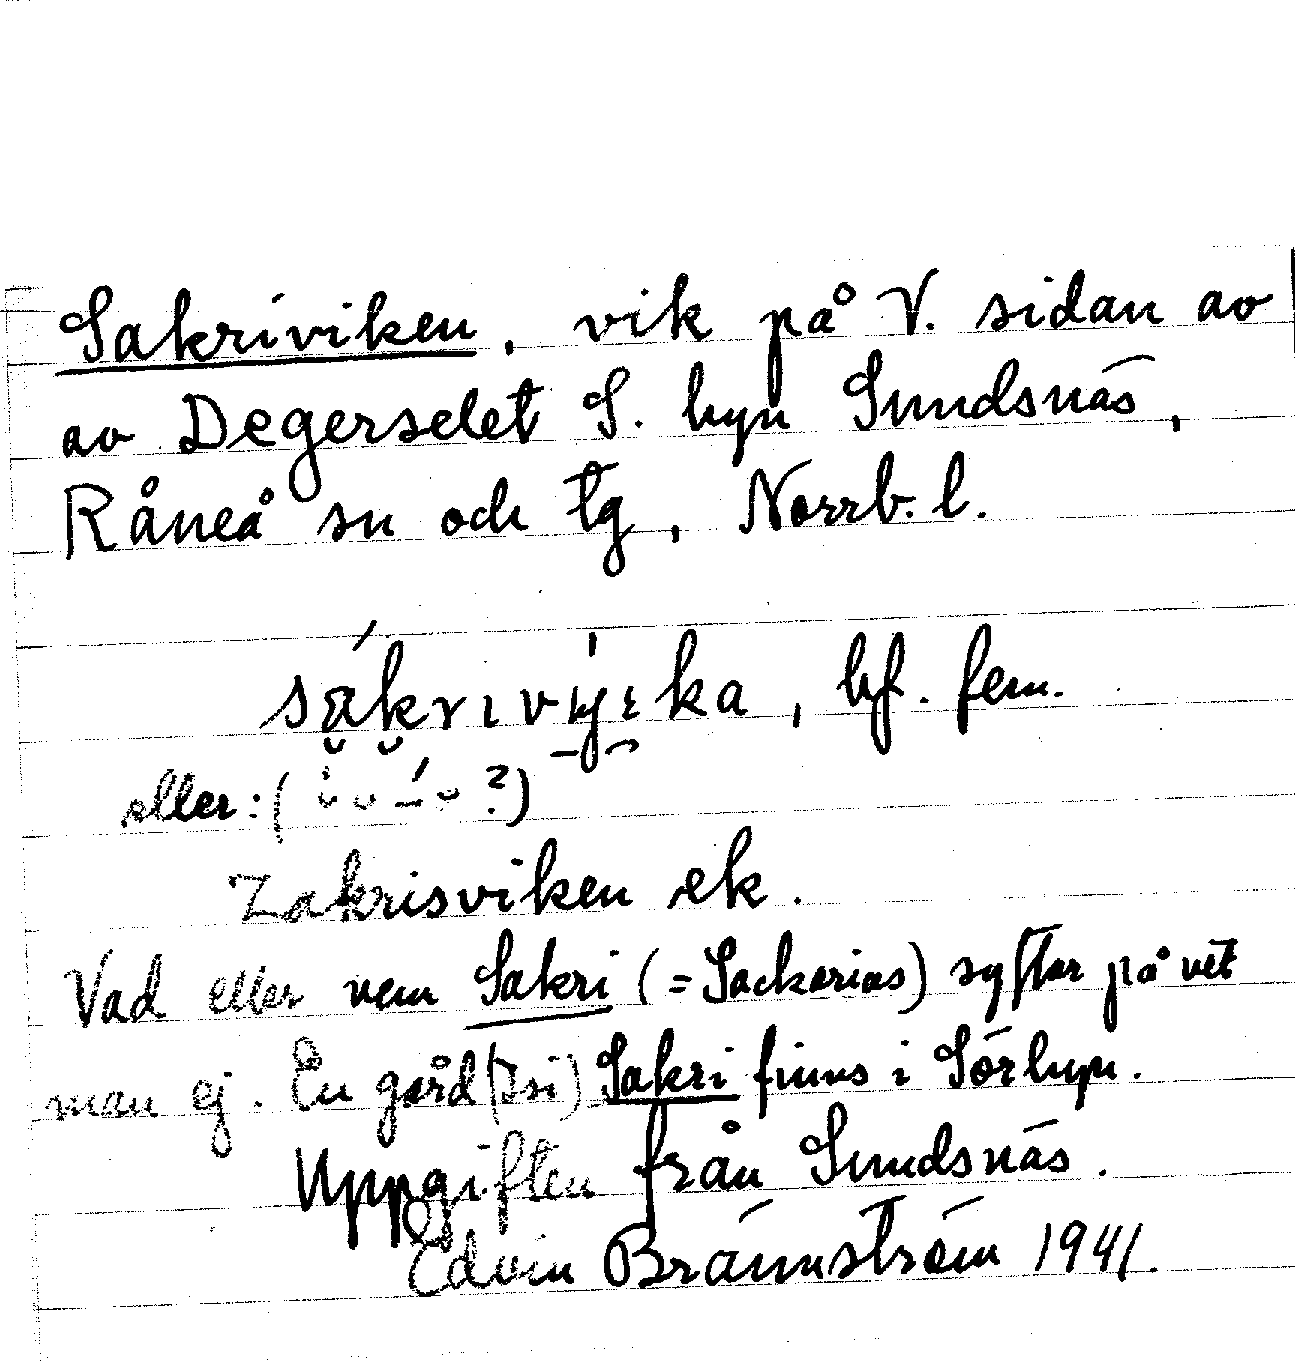 Sakriviken, vik på V. sidan av
av Degerselet S. byn Sundsnäs,
Råneå sn och tg, Norrb. l.
bf. fem.
eller: ( ?)
Zakrisviken ek.
Vad eller vem Sakri (=Sackarias) syftar på vet
man ej. En gård Sakri finns i Sörbyn.
Uppgiften från Sundsnäs.
Edvin Brännström 1941.